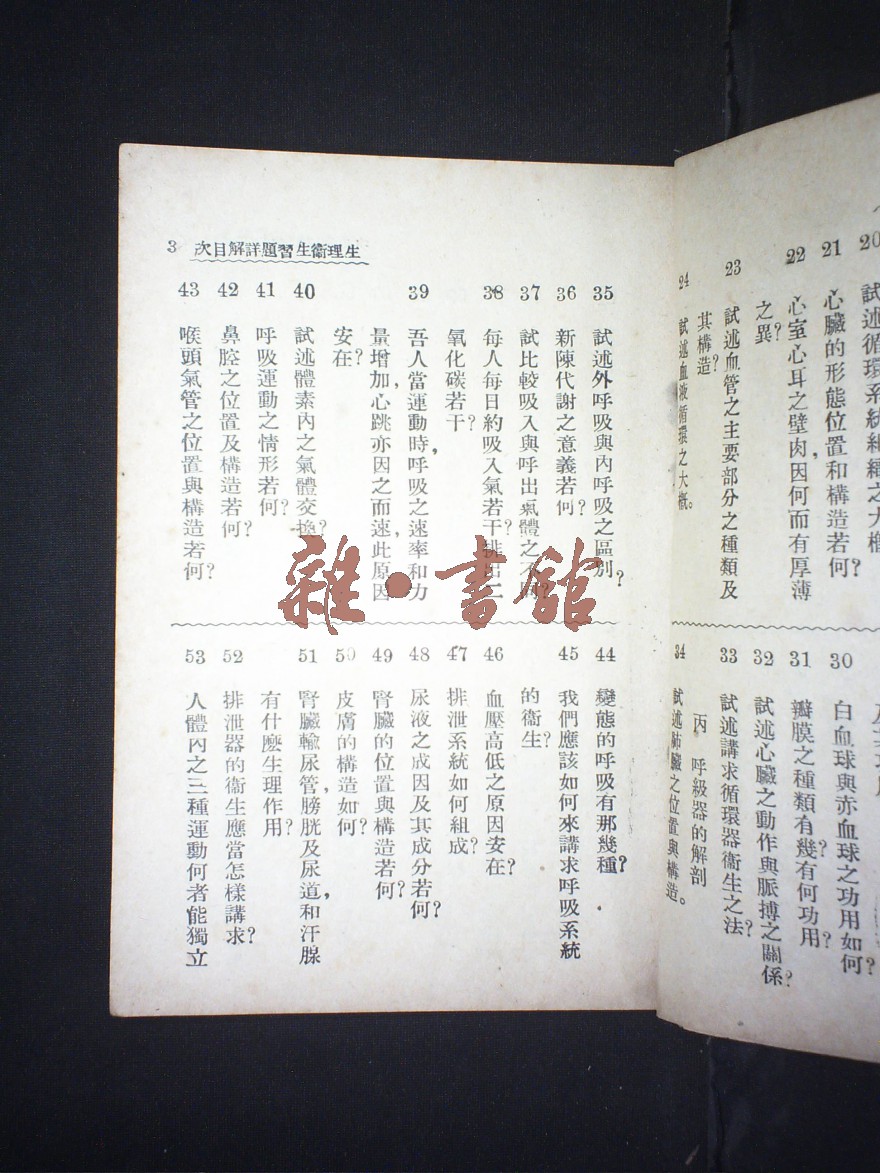 20 試述循環系統組織之大
21 心臟的形態位置和構造若何?
22 心室心耳之壁肉,因何而有厚薄
之異?
23 試述血管之主要部分之種類及
其構造?
24 試述血液循環之大槪。
30 白血球與赤血球之功用如何?
31 瓣膜之種類有幾?有何功用?
32 試述心臟之動作與脈搏之關係?
33 試述講求循環器衞生之法?
丙 呼級器的解剖
34 試述肺臟之位置與構造。
生理衞生習題詳解目次 3
35 試述外呼吸與內呼吸之區別?
36 新陳代謝之意義若何?
37 試比較吸入與呼出氣體之不同?
38 每人每日約吸入氣若干?排出二
氧化碳若干?
39 吾人當運動時,呼吸之速率和力
量增加,心跳亦因之而速,此原因
安在?
40 試述體素內之氣體交換?
41 呼吸運動之情形若何?
42 鼻腔之位置及構造若何?
43 喉頭氣管之位置與構造若何?
44 變態的呼吸有那幾種?
45 我們應該如何來講求呼吸系統
的衞生?
46 血壓高低之原因安在?
47 排泄系統如何組成?
48 尿液之成因及其成分若何?
49 腎臟的位置與構造若何?
50 皮膚的構造如何?
51 腎臟輸尿管,膀胱及尿道,和汗腺
有什麽生理作用?
52 排泄器的衞生應當怎樣講求?
53 人體內之三種運動何者能獨立
雜·書館